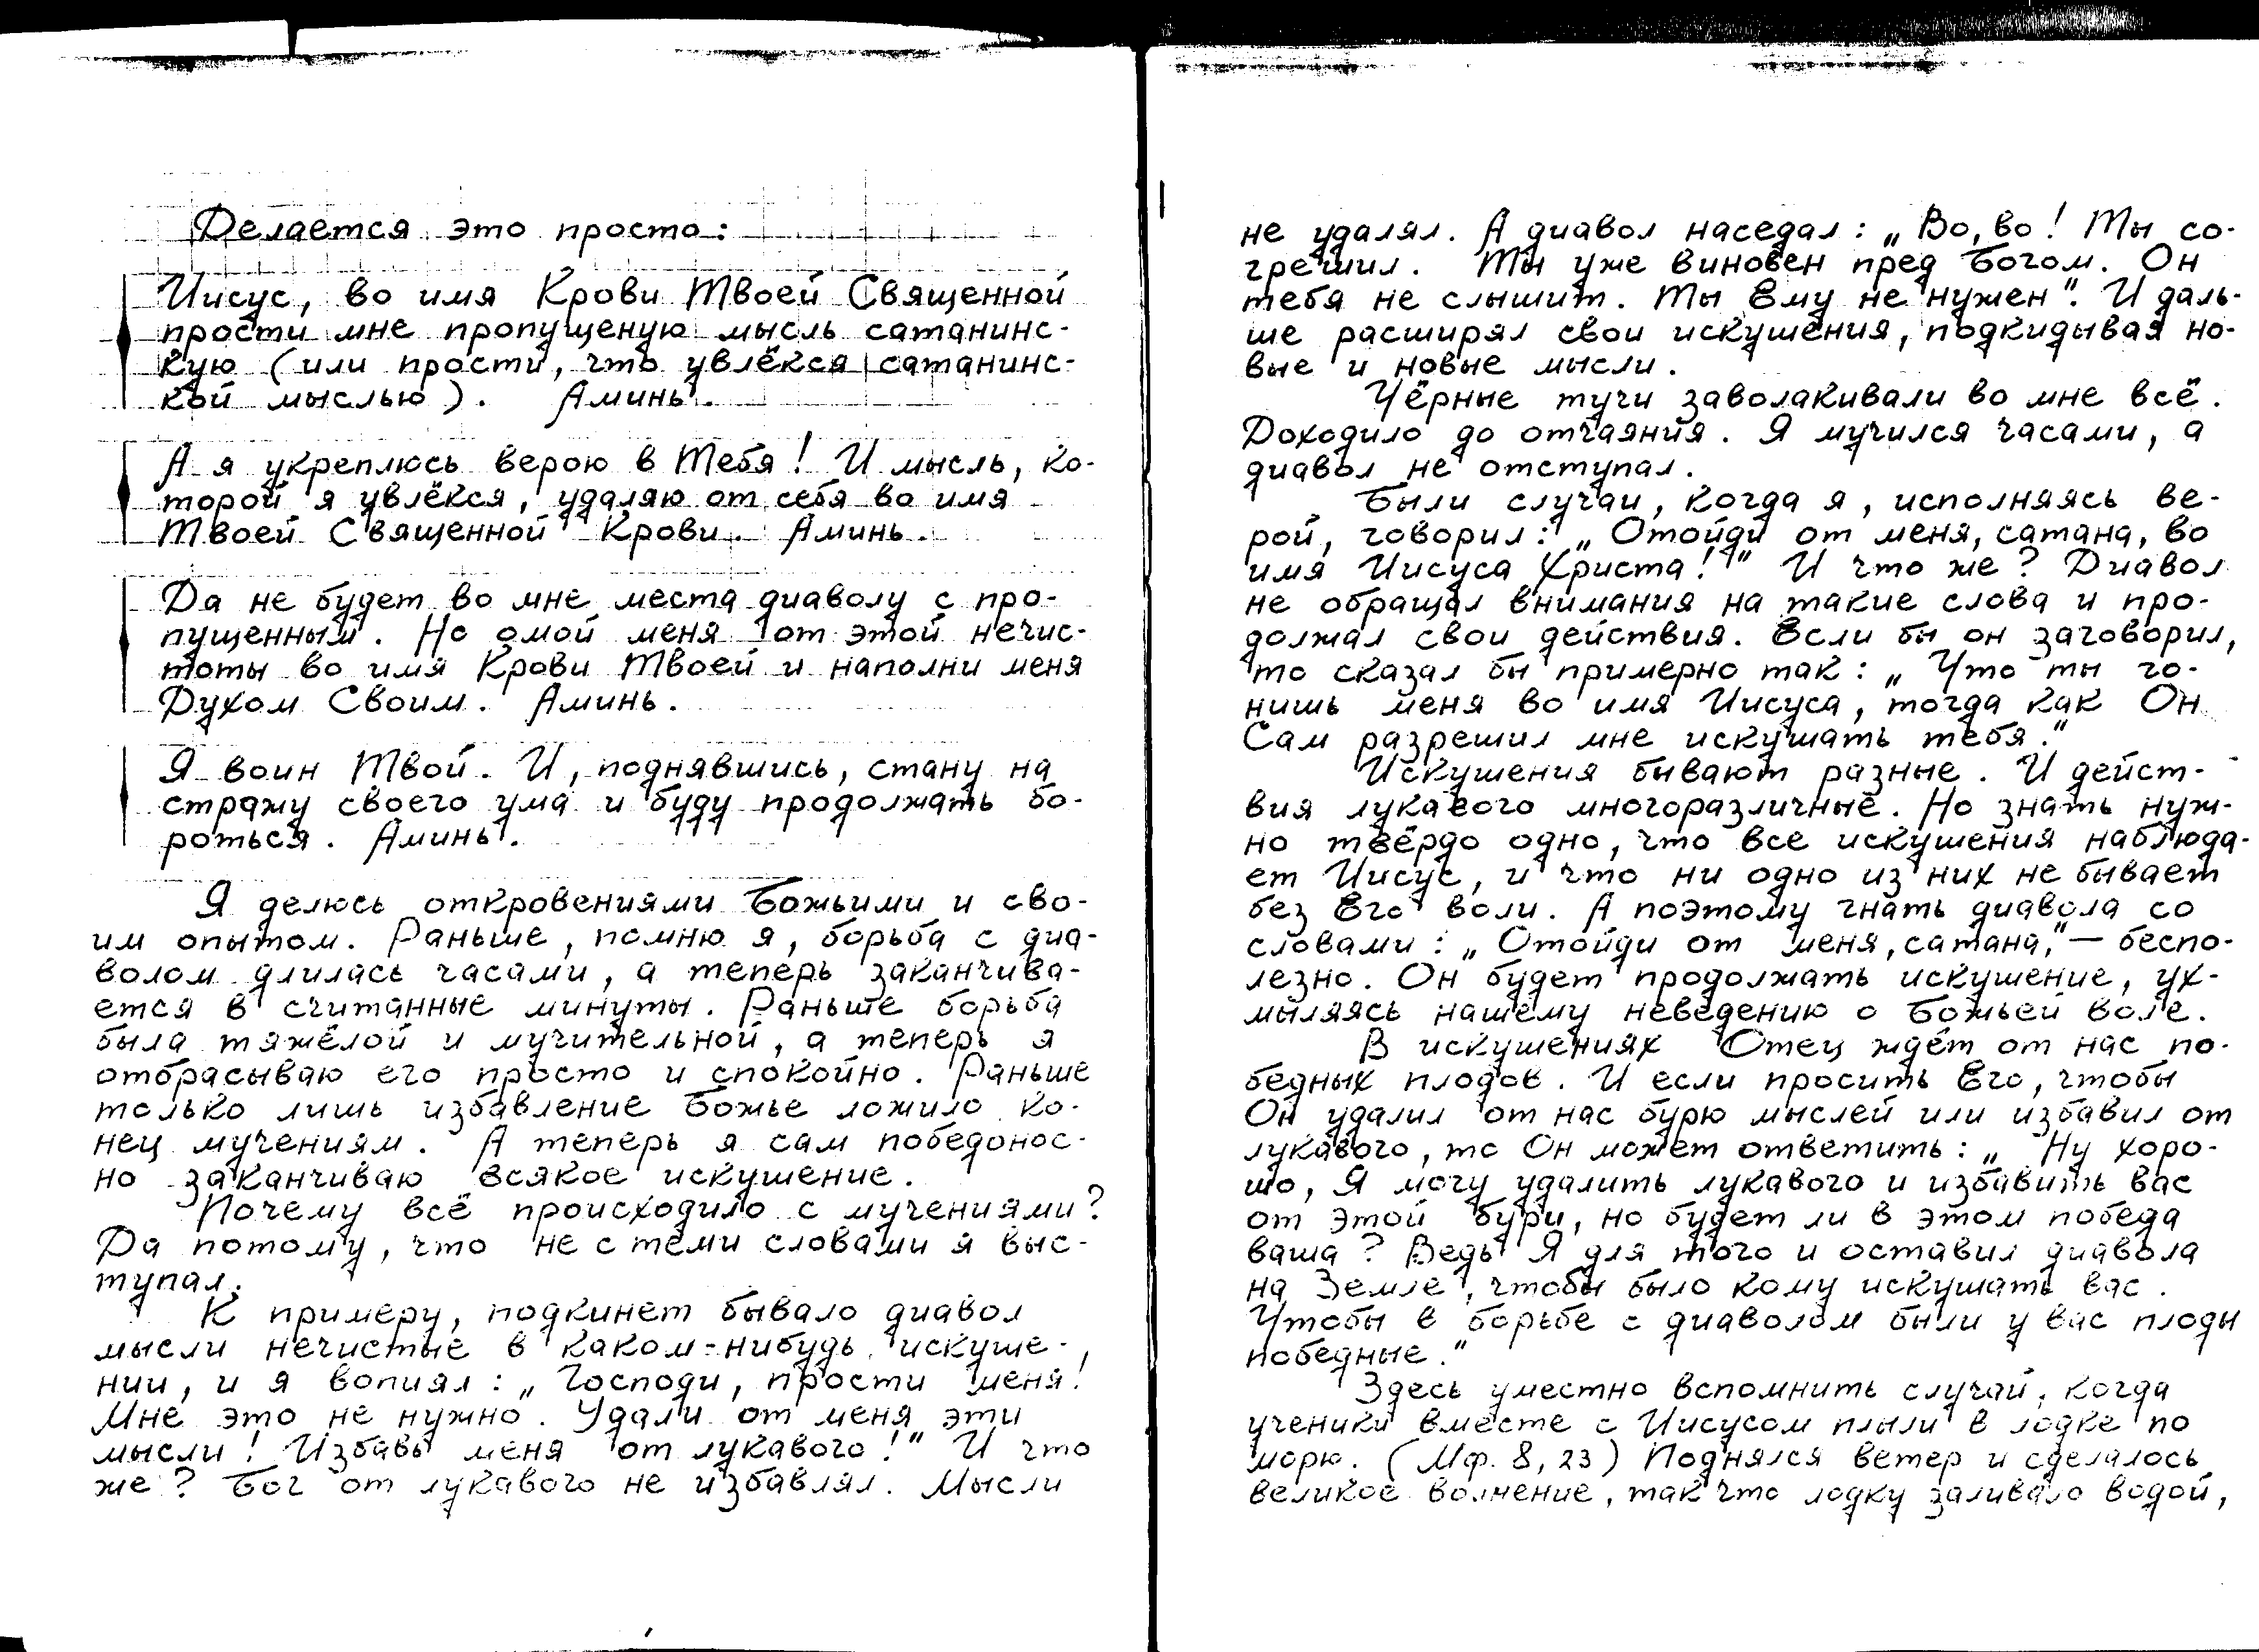 Делается это просто:
Иисус, во имя Крови Твоей Священной
прости мне пропущеную мысль сатанинс-
кую (или прости, что увлёкся сатанинс-
кой мыслью). Аминь.
А я укреплюсь верою в Тебя! И мысль, ко-
торой я увлёкся, удаляю от себя во имя
Твоей Священной Крови. Аминь.
Да не будет во мне места диаволу с про-
пущенным. Но омой меня от этой нечис-
тоты во имя Крови Твоей и наполни меня
Духом Своим. Аминь.
Я воин Твой. И, поднявшись, стану на
стражу своего ума и буду продолжать бо-
роться. Аминь.
Я делюсь откровениями Божьими и сво-
им опытом. Раньше, помню я, борьба с диа-
волом длилась часами, а теперь заканчива-
ется в считанные минуты. Раньше борьба
была тяжёлой и мучительной, а теперь я
отбрасываю его просто и спокойно. Раньше
только лишь избавление Божье ложило ко-
нец мучениям. А теперь я сам победонос-
но заканчиваю всякое искушение.
Почему всё происходило с мучениями?
Да потому, что не с теми словами я выс-
тупал.
К примеру, подкинет бывало диавол
мысли нечистые в каком-нибудь искуше-
нии, и я вопиял: „Господи, прости меня!
Мне это не нужно. Удали от меня эти
мысли! Избавь меня от лукавого!" И что
же? Бог от лукавого не избавлял. Мысли
не удалял. А диавол наседал: „Во, во! Ты со-
грешил. Ты уже виновен пред Богом. Он
тебя не слышит. Ты Ему не нужен". И даль-
ше расширял свои искушения, подкидывая но-
вые и новые мысли.
Чёрные тучи заволакивали во мне всё.
Доходило до отчаяния. Я мучился часами, а
диавол не отступал.
Были случаи, когда я, исполняясь ве-
рой, говорил: „Отойди от меня, сатана, во
имя Иисуса Христа!" И что же? Диавол
не обращал внимания на такие слова и про-
должал свои действия. Если бы он заговорил,
то сказал бы примерно так: „Что ты го-
нишь меня во имя Иисуса, тогда как Он
Сам разрешил мне искушать тебя."
Искушения бывают разные. И дейст-
вия лукавого многоразличные. Но знать нуж-
но твёрдо одно, что все искушения наблюда-
ет Иисус, и что ни одно из них не бывает
без Его воли. А поэтому гнать диавола со
словами: „Отойди от меня, сатана," — беспо-
лезно. Он будет продолжать искушение, ух-
мыляясь нашему неведению о Божьей воле.
В искушениях Отец ждёт от нас по-
бедных плодов. И если просить Его, чтобы
Он удалил от нас бурю мыслей или избавил от
лукавого, то Он может ответить: „Ну хоро-
шо, Я могу удалить лукавого и избавить вас
от этой бури, но будет ли в этом победа
ваша? Ведь Я для того и оставил диавола
на Земле, чтобы было кому искушать вас.
Чтобы в борьбе с диаволом были у вас плоды
победные."
Здесь уместно вспомнить случай, когда
ученики вместе с Иисусом плыли в лодке по
морю. (Мф. 8, 23) Поднялся ветер и сделалось
великое волнение, так что лодку заливало водой,